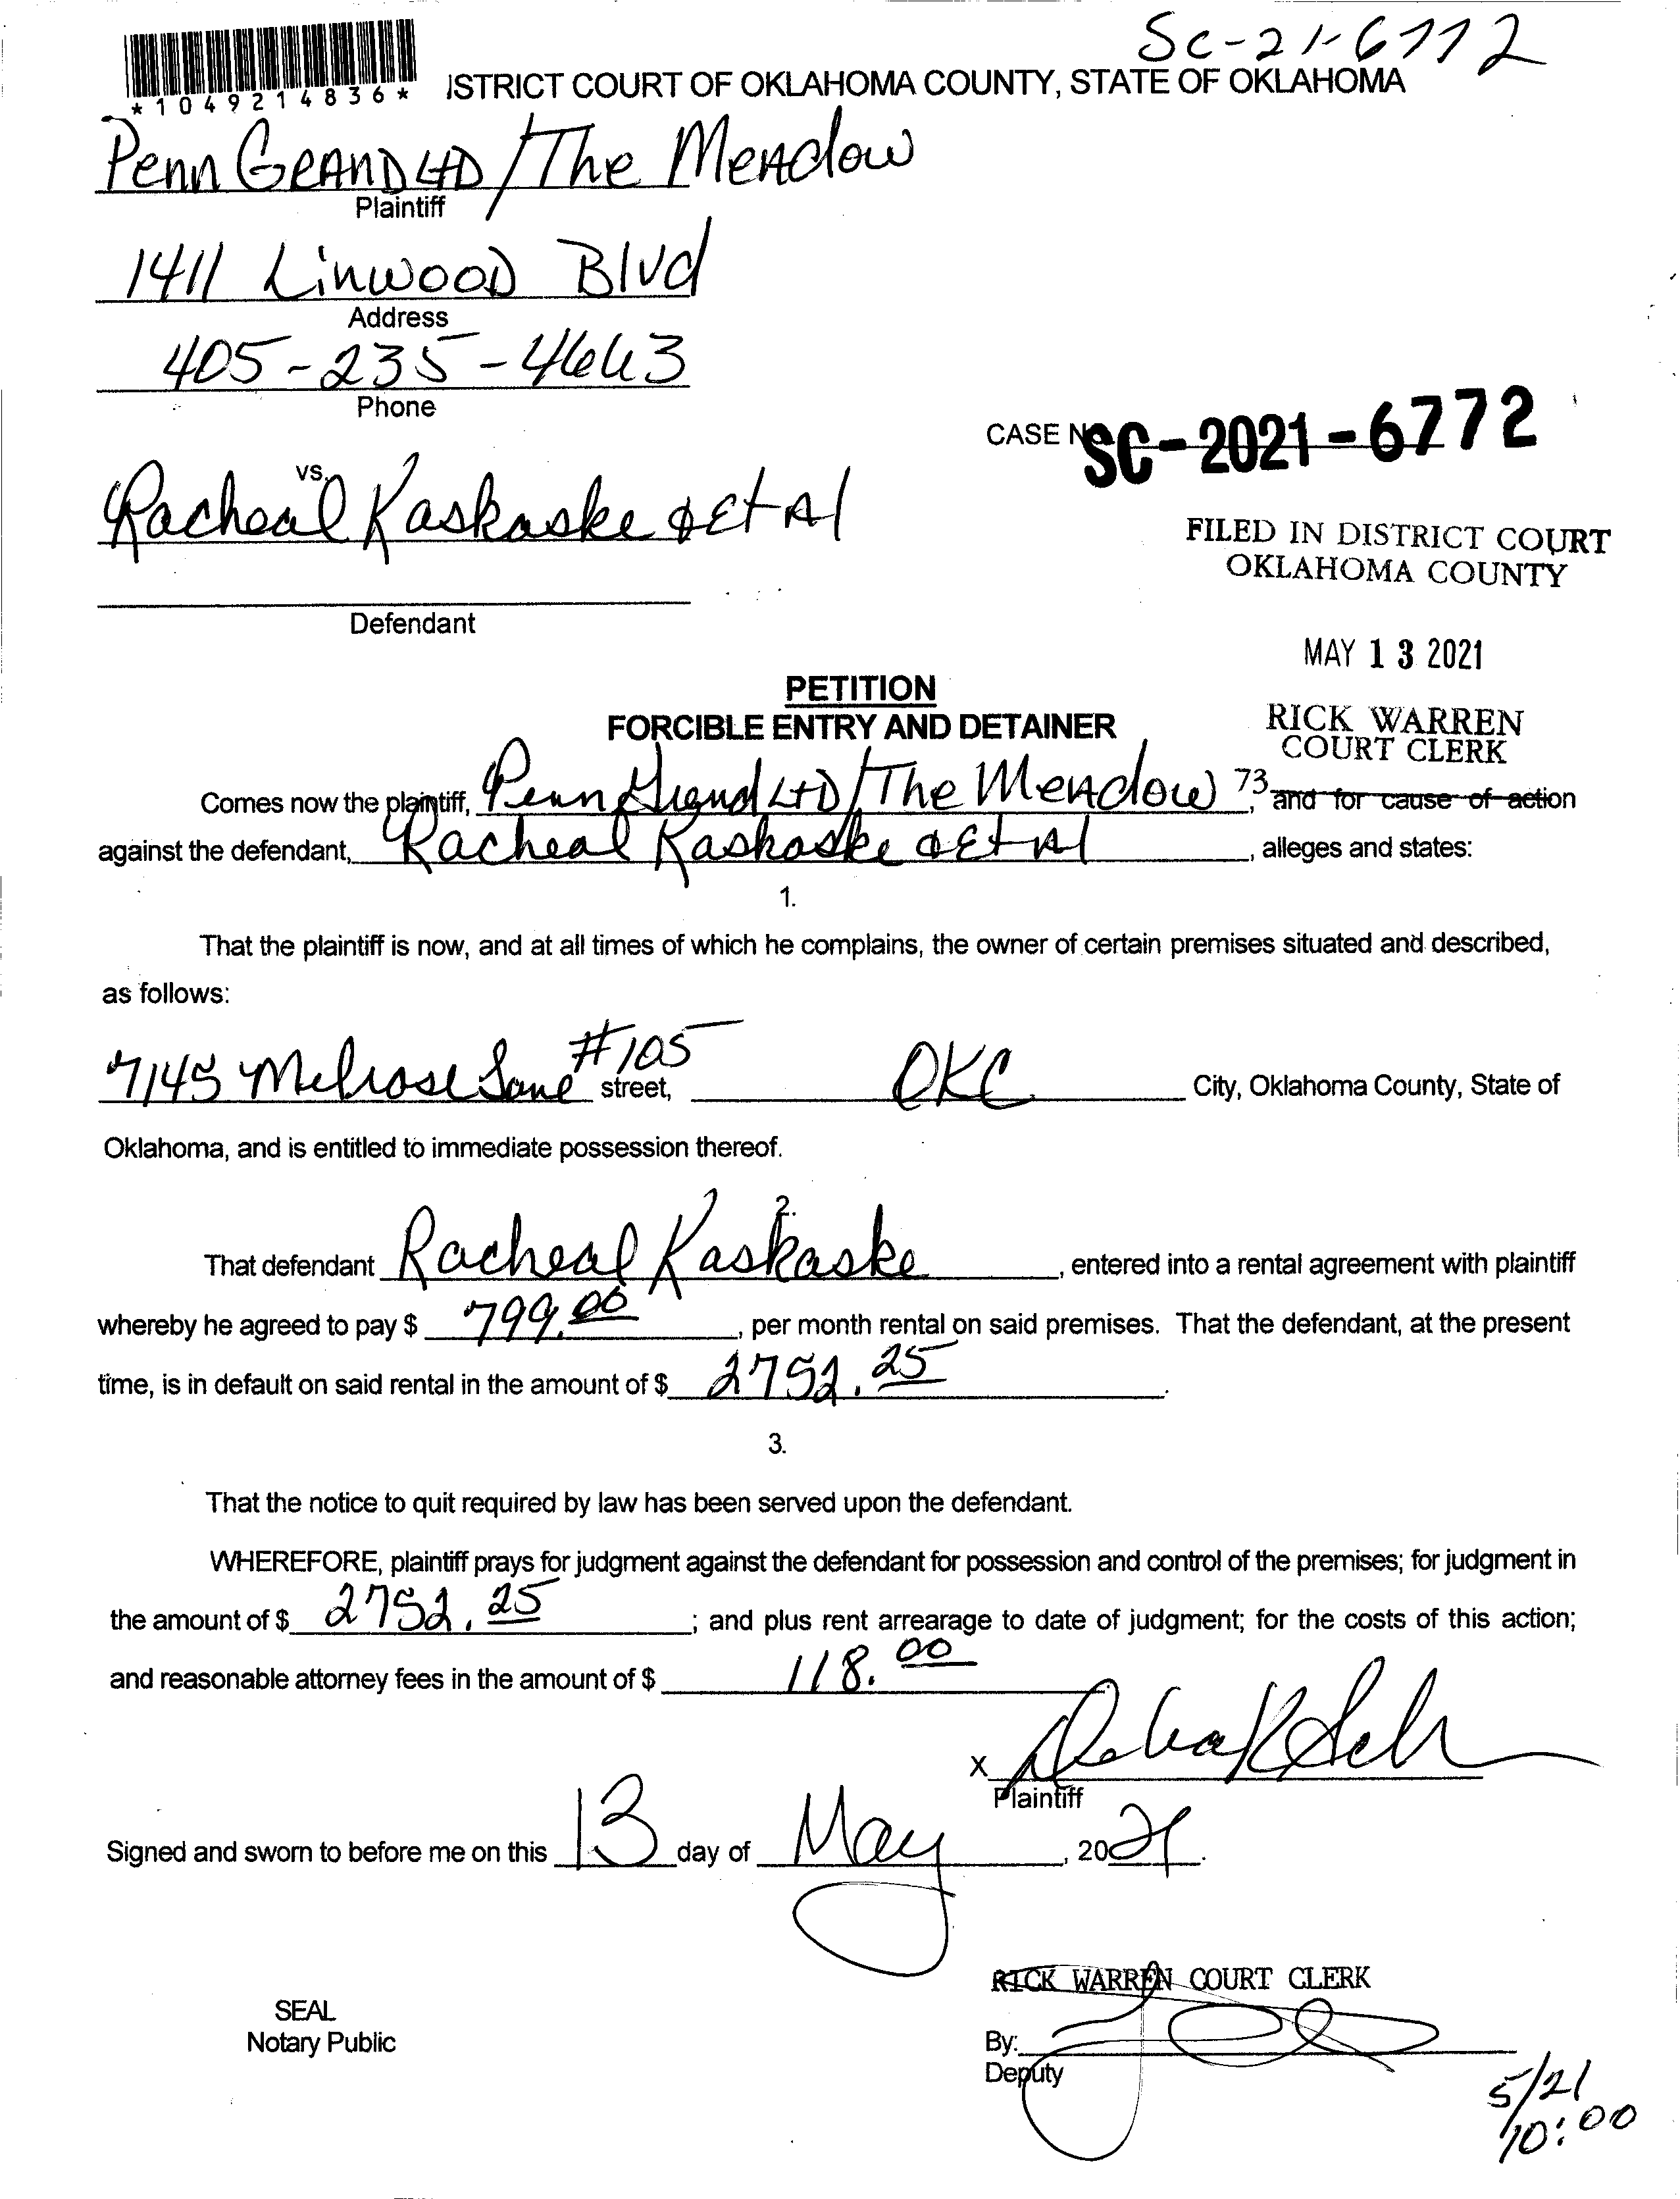 SC-21-6772
*1049214836*
ISTRICT COURT OF OKLAHOMA COUNTY, STATE OF OKLAHOMA
Penn Grand LTD/The Meadow
Plaintiff
1411 Linwood Blvd
Address
405-235-4663
Phone
CASE NO
SC-2021-6772
vs.
Racheal Kaskaske & Et Al
FILED IN DISTRICT COURT
OKLAHOMA COUNTY
Defendant
MAY 13 2021
PETITION
FORCIBLE ENTRY AND DETAINER
RICK WARREN
COURT CLERK
73
Comes now the plaintiff, Penn Grand LTD/The Meadow, and for cause of action
against the defendant, Racheal Kaskaske & Et Al, alleges and states:
1.
That the plaintiff is now, and at all times of which he complains, the owner of certain premises situated and described,
as follows:
7145 Melrose Lane #105 street, OKC City, Oklahoma County, State of
Oklahoma, and is entitled to immediate possession thereof.
2.
That defendant Racheal Kaskaske, entered into a rental agreement with plaintiff
whereby he agreed to pay $ 799.00, per month rental on said premises. That the defendant, at the present
time, is in default on said rental in the amount of $ 2752.25.
3.
That the notice to quit required by law has been served upon the defendant.
WHEREFORE, plaintiff prays for judgment against the defendant for possession and control of the premises; for judgment in
the amount of $ 2752.25; and plus rent arrearage to date of judgment; for the costs of this action;
and reasonable attorney fees in the amount of $ 118.00
X
Plaintiff
Signed and sworn to before me on this 13 day of May, 2021.
RICK WARREN COURT CLERK
SEAL
Notary Public
By:
Deputy
5/21
10:00